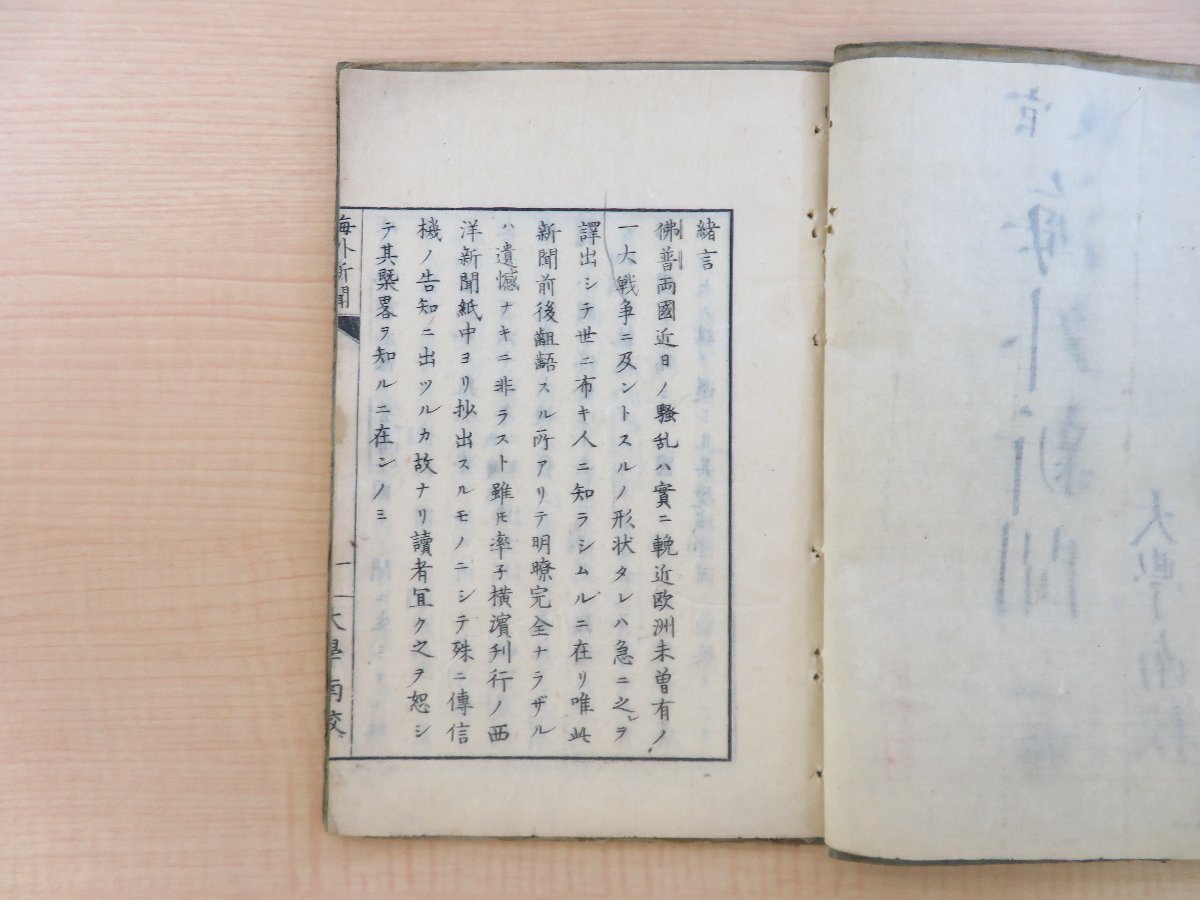 緒言
佛普両國近日ノ騒乱ハ實ニ輓近欧洲未曽有ノ
一大戦争ニ及ントスルノ形状タレハ急ニ之ヲ
譯出シテ世ニ布キ人ニ知ラシムルニ在リ唯此
新聞前後齟齬スル所アリテ明瞭完全ナラザル
ハ遺憾ナキニ非ラスト雖モ率子横濵刋行ノ西
洋新聞紙中ヨリ抄出スルモノニシテ殊ニ傳信
機ノ告知ニ出ツルカ故ナリ讀者冝ク之ヲ恕シ
テ其槩畧ヲ知ルニ在ンノミ
海外新聞
一
大學南校